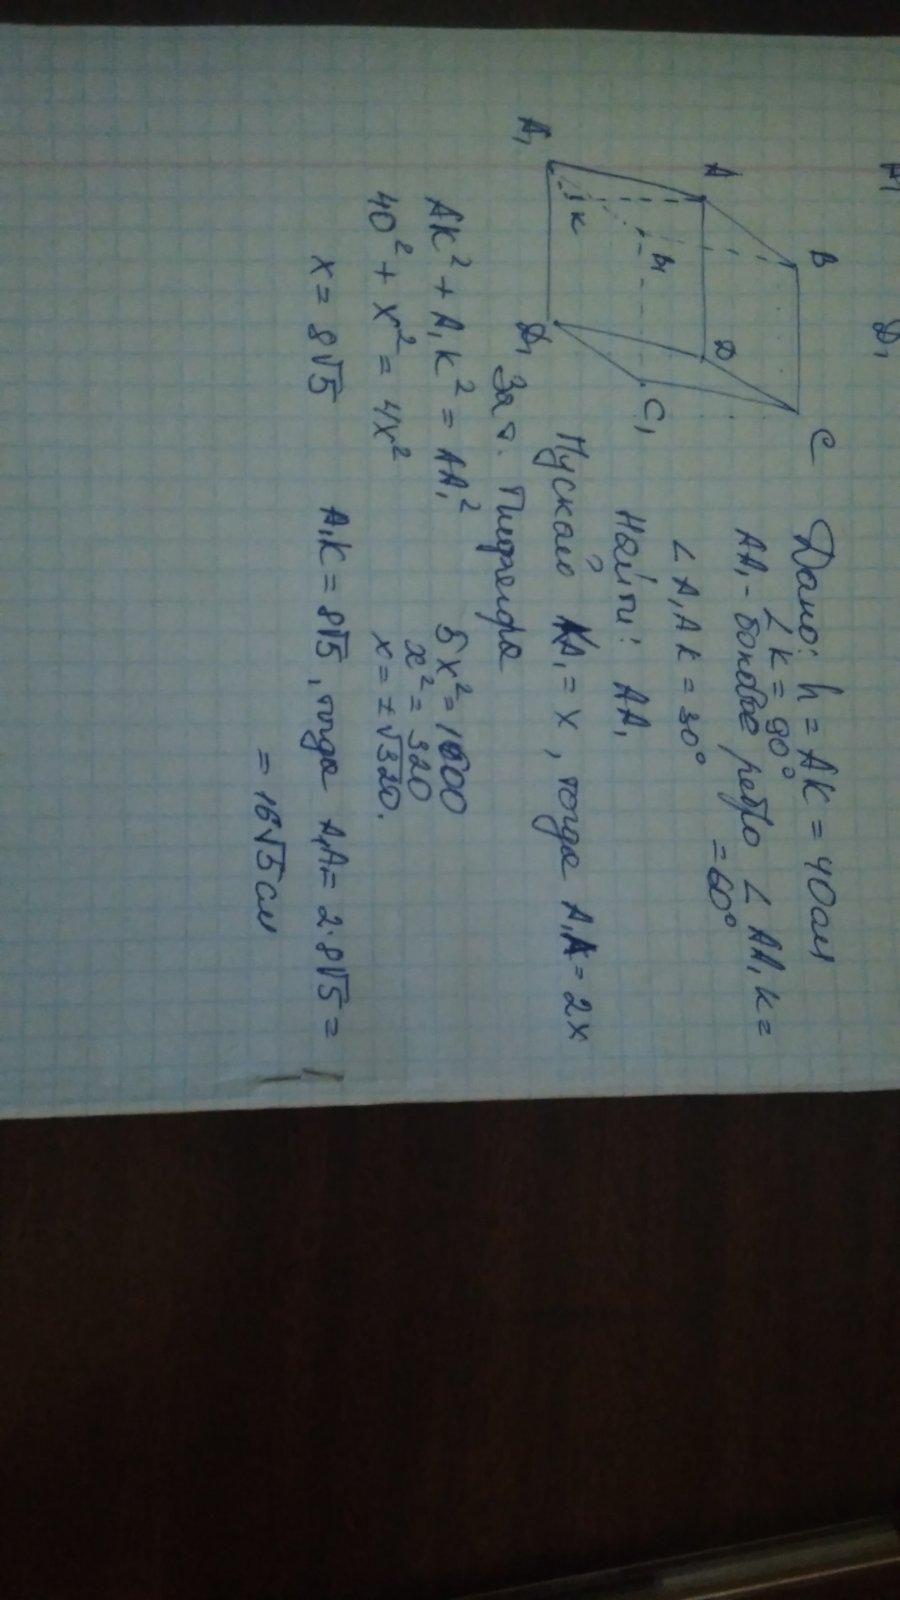 A₁
D₁
A
B
C
D
A₁
K
D₁
C₁
Дано: h = AK = 40 см
∠K = 90°
AA₁ - боковое ребро ∠AA₁K =
= 60°
∠A₁AK = 30°
Найти: AA₁
Пускай KA₁ = x, тогда A₁A = 2x
За т. Пифагора
AK² + A₁K² = AA₁²
40² + x² = 4x²
5x² = 1600
x² = 320
x = ±√320.
x = 8√5
A₁K = 8√5, тогда A₁A = 2·8√5 =
= 16√5 см